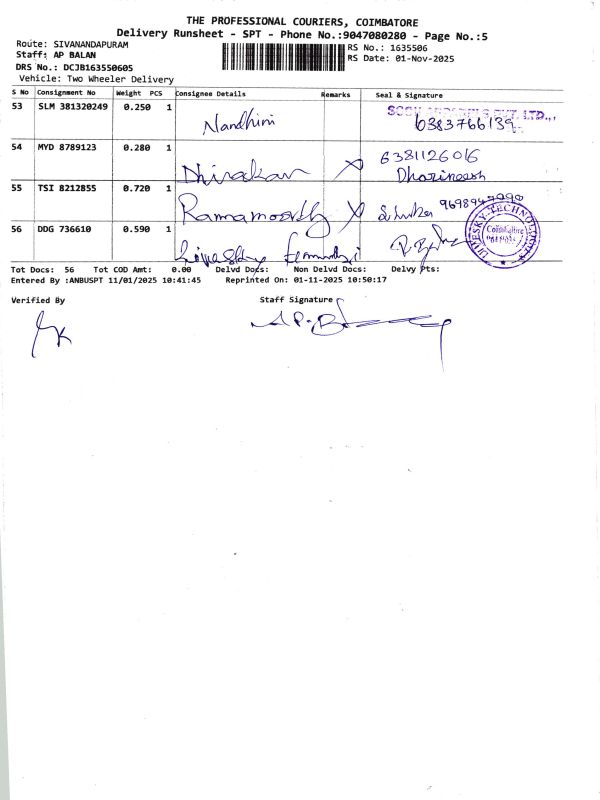 THE PROFESSIONAL COURIERS, COIMBATORE
Delivery Runsheet - SPT - Phone No.:9047080280 - Page No.:5
Route: SIVANANDAPURAM
RS No.: 1635506
Staff: AP BALAN
RS Date: 01-Nov-2025
DRS No.: DCJB163550605
Vehicle: Two Wheeler Delivery
S No Consignment No Weight PCS Consignee Details Remarks Seal & Signature
53 SLM 381320249 0.250 1 Nandhini 6383766139
54 MYD 8789123 0.280 1 Dhirakar 6381126016
Dharineesh
55 TSI 8212855 0.720 1 Ramamoorthy
56 DDG 736610 0.590 1 Livesky
LIVESKY TECHNOLOGIES
Coimbatore
Tot Docs: 56 Tot COD Amt: 0.00 Delvd Docs: Non Delvd Docs: Delvy Pts:
Entered By :ANBUSPT 11/01/2025 10:41:45 Reprinted On: 01-11-2025 10:50:17
Verified By Staff Signature
AP. B